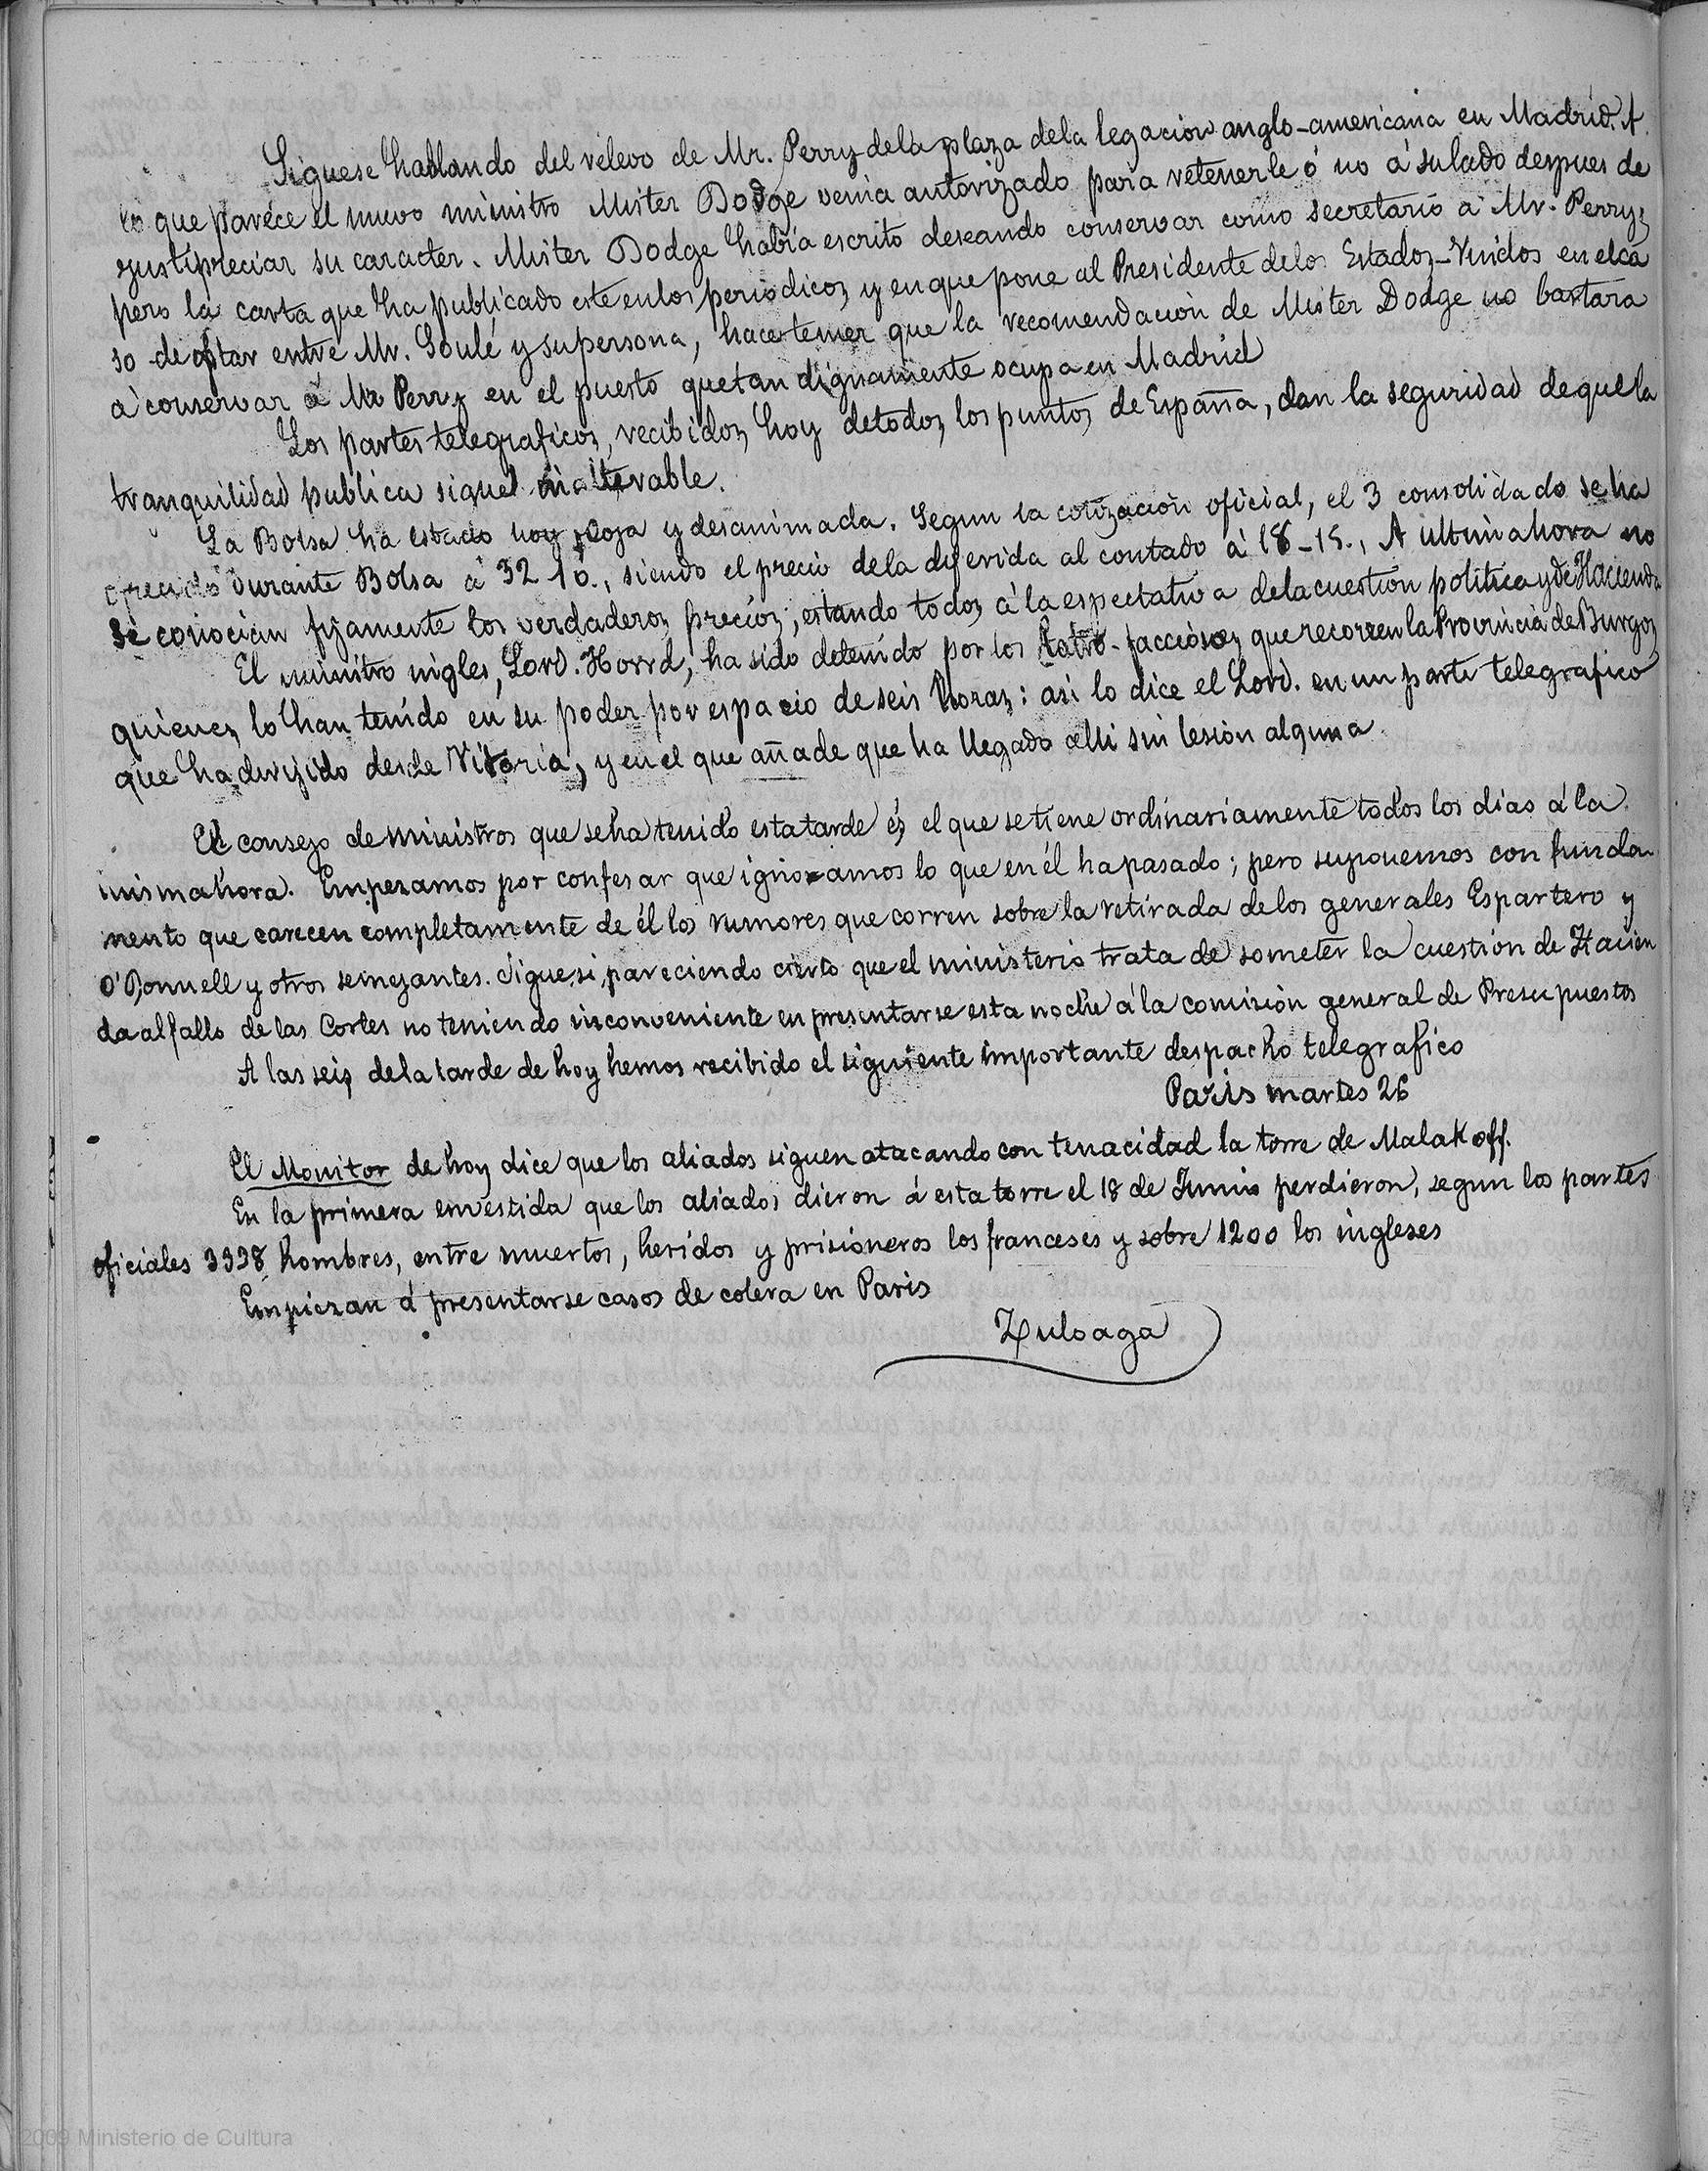 Siguese hablando del relevo de Mr. Perry de la plaza dela legacion anglo-americana en Madrid. A
lo que parece el nuevo ministro Mister Dodge venia autorizado para retenerle ó no á su lado despues de
justipreciar su caracter. Mister Dodge habia escrito deseando conservar como secretario á Mr. Perry,
pero la carta que ha publicado este en los periodicos y en que pone al Presidente de los Estados-Unidos en el ca
so de optar entre Mr. Soulé y su persona, hace temer que la recomendacion de Mister Dodge no bastara
á conservar á Mr Perry en el puesto que tan dignamente ocupa en Madrid
Los partes telegraficos, recibidos hoy de todos los puntos de España, dan la seguridad de que la
tranquilidad publica sigue inalterable.
La Bolsa ha estado hoy floja y desanimada. Segun la cotizacion oficial, el 3 consolidado se ha
ofrecido durante Bolsa á 32 10., siendo el precio dela diferida al contado á 18-15., A ultima hora no
se conocian fijamente los verdaderos precios; estando todos á la espectativa dela cuestion politica y de Hacienda
El ministro ingles, Lord. Howrd, ha sido detenido por los latro-facciosos que recorren la Provincia de Burgos
quienes lo han tenido en su poder por espacio de seis horas: asi lo dice el Lord. en un parte telegrafico
que ha dirijido desde Vitoria, y en el que añade que ha llegado alli sin lesion alguna.
El consejo de ministros que se ha tenido esta tarde és el que se tiene ordinariamente todos los dias á la
misma hora. Empezamos por confesar que ignoramos lo que en él ha pasado; pero suponemos con funda
mento que carecen completamente de él los rumores que corren sobre la retirada de los generales Espartero y
O'Donnell y otros semejantes. Sigue, si, pareciendo cierto que el ministerio trata de someter la cuestion de Hacien
da al fallo de las Cortes no teniendo inconveniente en presentarse esta noche á la comision general de Presupuestos
A las seis de la tarde de hoy hemos recibido el siguiente importante despacho telegrafico
Paris martes 26
El Monitor de hoy dice que los aliados siguen atacando con tenacidad la torre de Malakoff.
En la primera envestida que los aliados dieron á esta torre el 18 de Junio perdieron, segun los partes
oficiales 3338 hombres, entre muertos, heridos y prisioneros los franceses y sobre 1200 los ingleses
Empiezan á presentarse casos de colera en Paris
Zuloaga
2009 Ministerio de Cultura